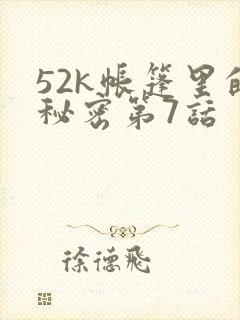 52k帳篷里的
秘密第7話
徐德飛